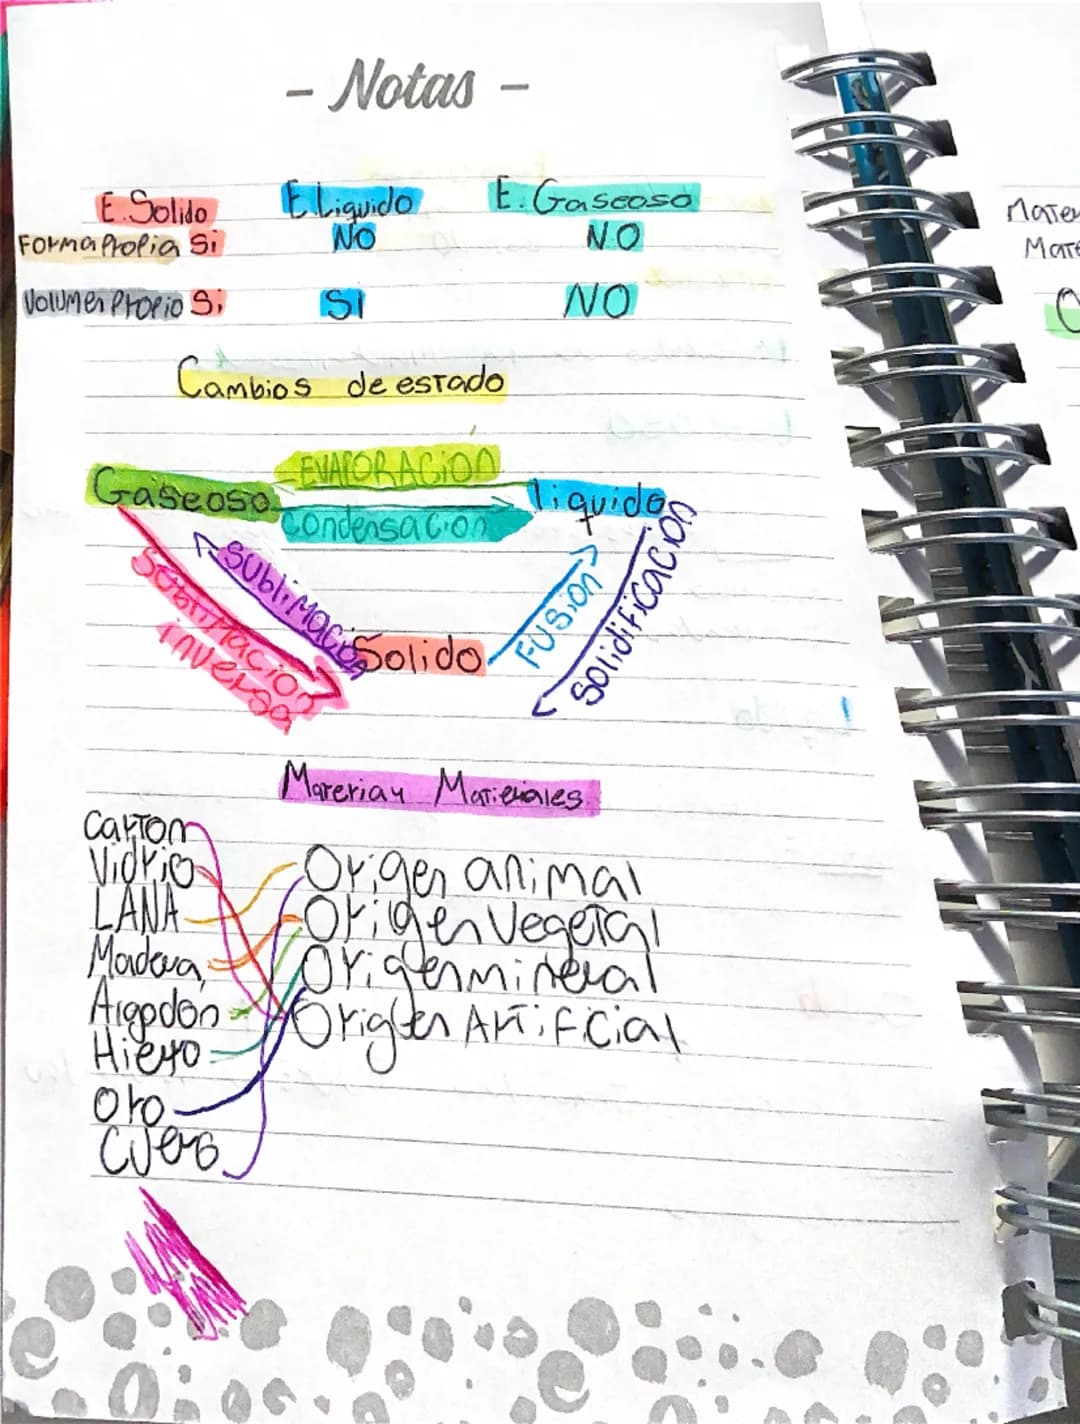 - Notas -
E.Solido E.Liquido E.Gaseoso
Forma Propia Si NO NO
Volumen Propio Si SI NO
Cambios de estado
EVAPORACION
Gaseoso liquido
Condensacion
Sublimacion
Sublimacion inversa
Solido
Fusion
Solidificacion
Materia y Materiales
Carton
Vidrio Origen animal
LANA Origen Vegetal
Madera Origen mineral
Algodón Origen Artificial
Hierro
Oro
Cuero
Mater
Mate